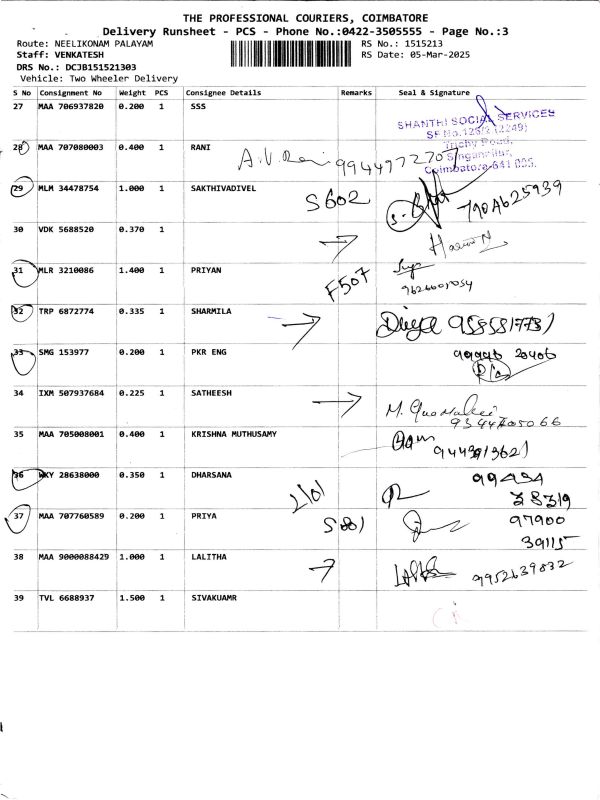 THE PROFESSIONAL COURIERS, COIMBATORE
Delivery Runsheet - PCS - Phone No.:0422-3505555 - Page No.:3
Route: NEELIKONAM PALAYAM RS No.: 1515213
Staff: VENKATESH RS Date: 05-Mar-2025
DRS No.: DCJB151521303
Vehicle: Two Wheeler Delivery
S No Consignment No Weight PCS Consignee Details Remarks Seal & Signature
27 MAA 706937820 0.200 1 SSS
SHANTHI SOCIAL SERVICES
Trichy Road,
Singanallur,
Coimbatore-641 005.
28 MAA 707080003 0.400 1 RANI
29 MLM 34478754 1.000 1 SAKTHIVADIVEL S602
30 VDK 5688520 0.370 1
31 MLR 3210086 1.400 1 PRIYAN F507
32 TRP 6872774 0.335 1 SHARMILA
33 SMG 153977 0.200 1 PKR ENG 99946 20406
34 IXM 507937684 0.225 1 SATHEESH
35 MAA 705008001 0.400 1 KRISHNA MUTHUSAMY
36 WKY 28638000 0.350 1 DHARSANA
37 MAA 707760589 0.200 1 PRIYA 97900
39115
38 MAA 9000088429 1.000 1 LALITHA 9952639832
39 TVL 6688937 1.500 1 SIVAKUAMR